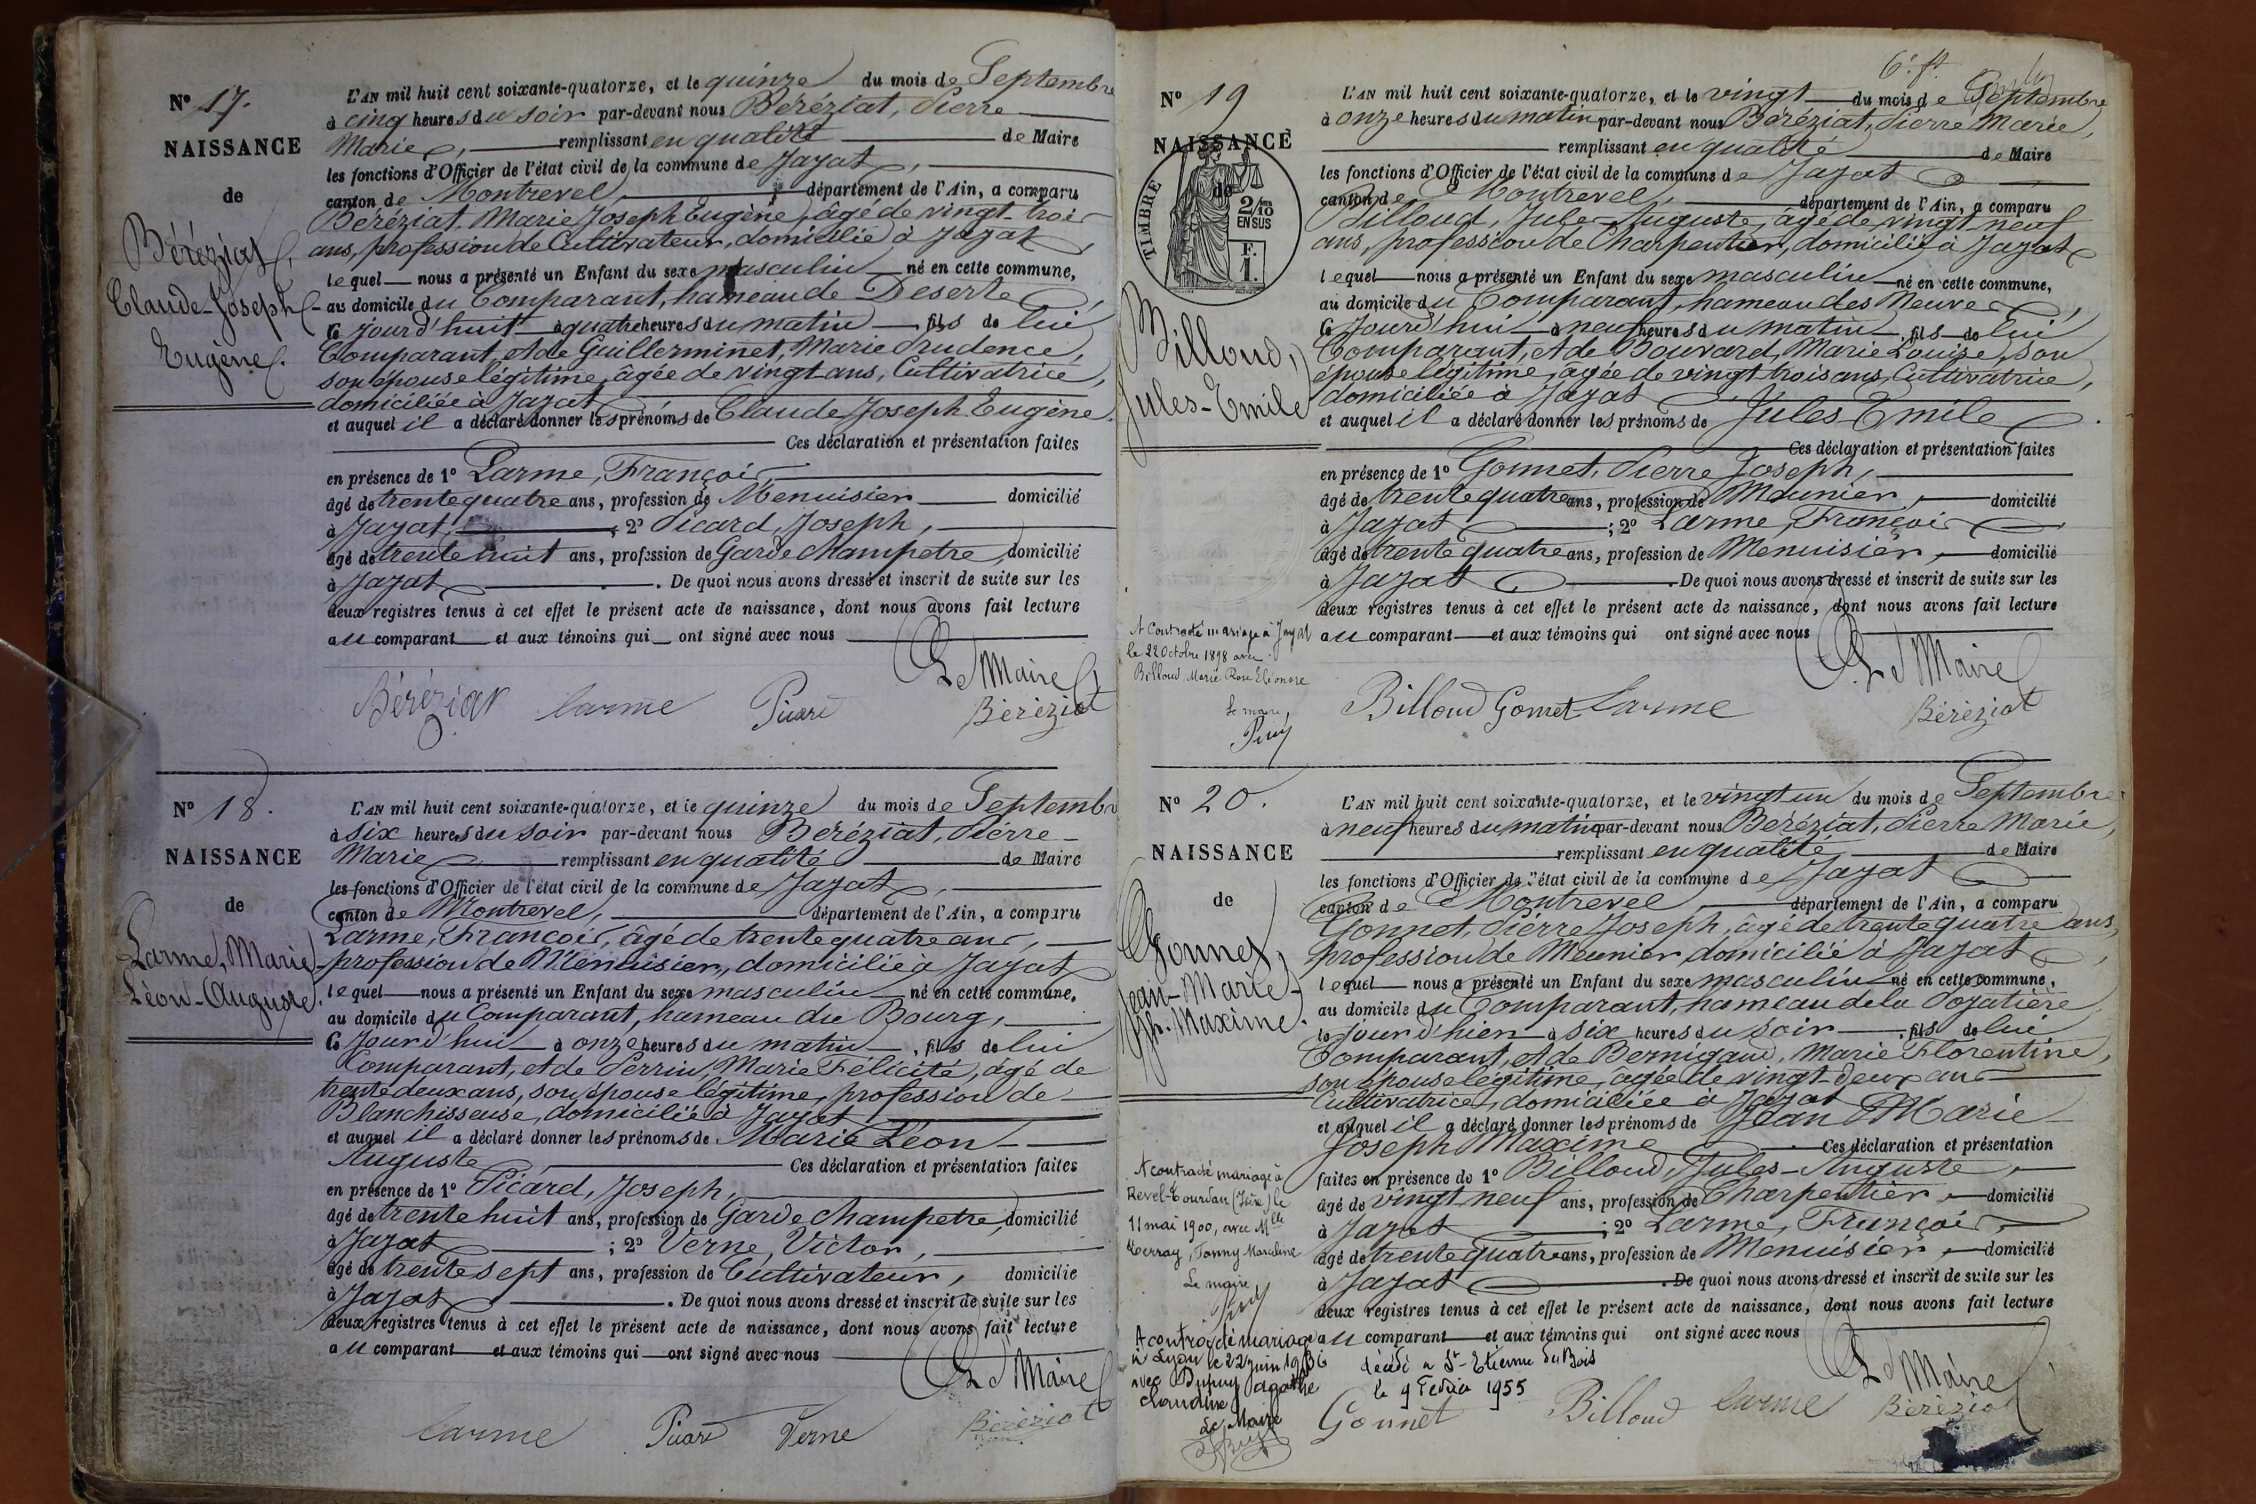 N° 17.
NAISSANCE
de
Béréziat,
Claude-Joseph
Eugène.
L'AN mil huit cent soixante-quatorze, et le quinze du mois de Septembre
à cinq heures du soir par-devant nous Béréziat, Pierre
Marie, remplissant en qualité de Maire
les fonctions d'Officier de l'état civil de la commune de Jayat,
canton de Montrevel, département de l'Ain, a comparu
Béréziat, Marie Joseph Eugène, âgé de vingt-trois
ans, profession de Cultivateur, domicilié à Jayat
lequel nous a présenté un Enfant du sexe masculin né en cette commune,
au domicile du Comparant, hameau de Deserte,
ce jourd'huit à quatre heures du matin fils de lui
Comparant, et de Guillerminet, Marie Prudence,
son épouse légitime, âgée de vingt ans, Cultivatrice,
domiciliée à Jayat
et auquel il a déclaré donner les prénoms de Claude Joseph Eugène.
Ces déclaration et présentation faites
en présence de 1° Larme, François,
âgé de trente quatre ans, profession de Menuisier domicilié
à Jayat, ; 2° Picard, Joseph,
âgé de trente huit ans, profession de Garde champetre, domicilié
à Jayat . De quoi nous avons dressé et inscrit de suite sur les
deux registres tenus à cet effet le présent acte de naissance, dont nous avons fait lecture
au comparant et aux témoins qui ont signé avec nous
Le Maire
Béréziat Larme Picard Béréziat
N° 18.
NAISSANCE
de
Larme, Marie
Léon-Auguste.
L'AN mil huit cent soixante-quatorze, et le quinze du mois de Septembre
à six heures du soir par-devant nous Béréziat, Pierre
Marie remplissant en qualité de Maire
les fonctions d'Officier de l'état civil de la commune de Jayat,
canton de Montrevel, département de l'Ain, a comparu
Larme, François, âgé de trente quatre ans,
profession de Menuisier, domicilié à Jayat
lequel nous a présenté un Enfant du sexe masculin né en cette commune,
au domicile du Comparant, hameau du Bourg,
ce jourd'hui à onze heures du matin, fils de lui
Comparant, et de Perrin, Marie Félicité, âgé de
trente deux ans, son épouse légitime, profession de
Blanchisseuse, domicilié à Jayat
et auquel il a déclaré donner les prénoms de Marie Léon
Auguste Ces déclaration et présentation faites
en présence de 1° Picard, Joseph,
âgé de trente huit ans, profession de Garde champetre, domicilié
à Jayat ; 2° Verne, Victor,
âgé de trente sept ans, profession de Cultivateur, domicilié
à Jayat . De quoi nous avons dressé et inscrit de suite sur les
deux registres tenus à cet effet le présent acte de naissance, dont nous avons fait lecture
au comparant et aux témoins qui ont signé avec nous
Le Maire
Larme Picard Verne Béréziat
6e ft.
N° 19
NAISSANCE
de
TIMBRE
2/10
EN SUS
F.
1.
Billoud,
Jules-Emile
L'AN mil huit cent soixante-quatorze, et le vingt du mois de Septembre
à onze heures du matin par-devant nous Béréziat, Pierre Marie,
remplissant en qualité de Maire
les fonctions d'Officier de l'état civil de la commune de Jayat
canton de Montrevel, département de l'Ain, a comparu
Billoud, Jules-Auguste, âgé de vingt neuf
ans, profession de Charpentier, domicilié à Jayat
lequel nous a présenté un Enfant du sexe masculin né en cette commune,
au domicile du Comparant, hameau des Neuves,
ce jourd'hui à neuf heures du matin, fils de lui
Comparant, et de Bouvard, Marie Louise, son
épouse légitime, âgée de vingt trois ans, Cultivatrice,
domiciliée à Jayat
et auquel il a déclaré donner les prénoms de Jules Emile
Ces déclaration et présentation faites
en présence de 1° Gonnet, Pierre Joseph,
âgé de trente quatre ans, profession de Meunier, domicilié
à Jayat ; 2° Larme, François
âgé de trente quatre ans, profession de Menuisier, domicilié
à Jayat . De quoi nous avons dressé et inscrit de suite sur les
deux registres tenus à cet effet le présent acte de naissance, dont nous avons fait lecture
au comparant et aux témoins qui ont signé avec nous
A Contracté mariage à Jayat
le 22 Octobre 1898 avec
Billoud, Marie Rose Eléonore
Le maire,
Puy
Le Maire
Billoud Gonnet Larme Béréziat
N° 20.
NAISSANCE
de
Gonnet,
Jean-Marie-
Jph. Maxime.
L'AN mil huit cent soixante-quatorze, et le vingt un du mois de Septembre
à neuf heures du matin par-devant nous Béréziat, Pierre Marie,
remplissant en qualité de Maire
les fonctions d'Officier de l'état civil de la commune de Jayat
canton de Montrevel département de l'Ain, a comparu
Gonnet, Pierre Joseph, âgé de trente quatre ans,
profession de Meunier, domicilié à Jayat,
lequel nous a présenté un Enfant du sexe masculin né en cette commune,
au domicile du Comparant, hameau de la Pozatière,
le jour d'hier à six heures du soir, fils de lui
Comparant, et de Bernigaud, Marie Florentine,
son épouse légitime, âgée de vingt-deux ans
Cultivatrice, domiciliée à Jayat
et auquel il a déclaré donner les prénoms de Jean Marie
Joseph Maxime Ces déclaration et présentation
faites en présence de 1° Billoud, Jules-Auguste,
âgé de vingt neuf ans, profession de Charpentier, domicilié
à Jayat ; 2° Larme, François,
âgé de trente quatre ans, profession de Menuisier, domicilié
à Jayat . De quoi nous avons dressé et inscrit de suite sur les
deux registres tenus à cet effet le présent acte de naissance, dont nous avons fait lecture
au comparant et aux témoins qui ont signé avec nous
A contracté mariage à
Revel-Tourdan (Isère) le
11 mai 1900, avec Mlle
Terray, Fanny Marceline
Le maire
Puy
A contracté mariage
à Lyon le 22 juin 1936
avec Dupuy Agathe
Claudine
Le Maire
décédé à St-Etienne du Bois
le 9 Février 1955
Le Maire
Gonnet Billoud Larme Béréziat